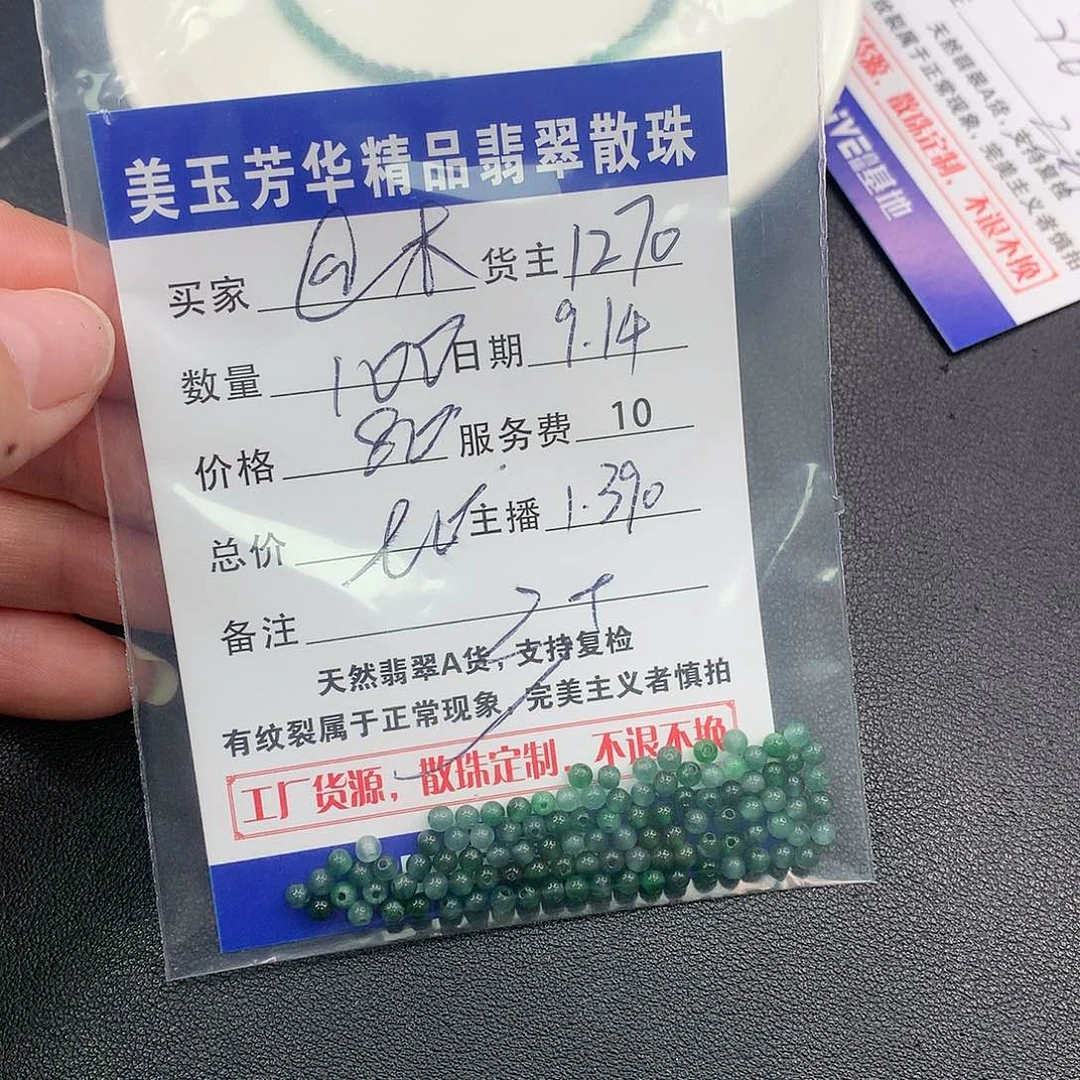 美玉芳华精品翡翠散珠
买家 货主 1270
数量 100 日期 9.14
价格 服务费 10
总价 主播 1.390
备注
天然翡翠A货,支持复检
有纹裂属于正常现象,完美主义者慎拍
工厂货源,散珠定制,不退不换
天然翡翠A货,支持复检
纹裂属于正常现象,完美主义者慎拍
货源,散珠定制,不退不换
基地